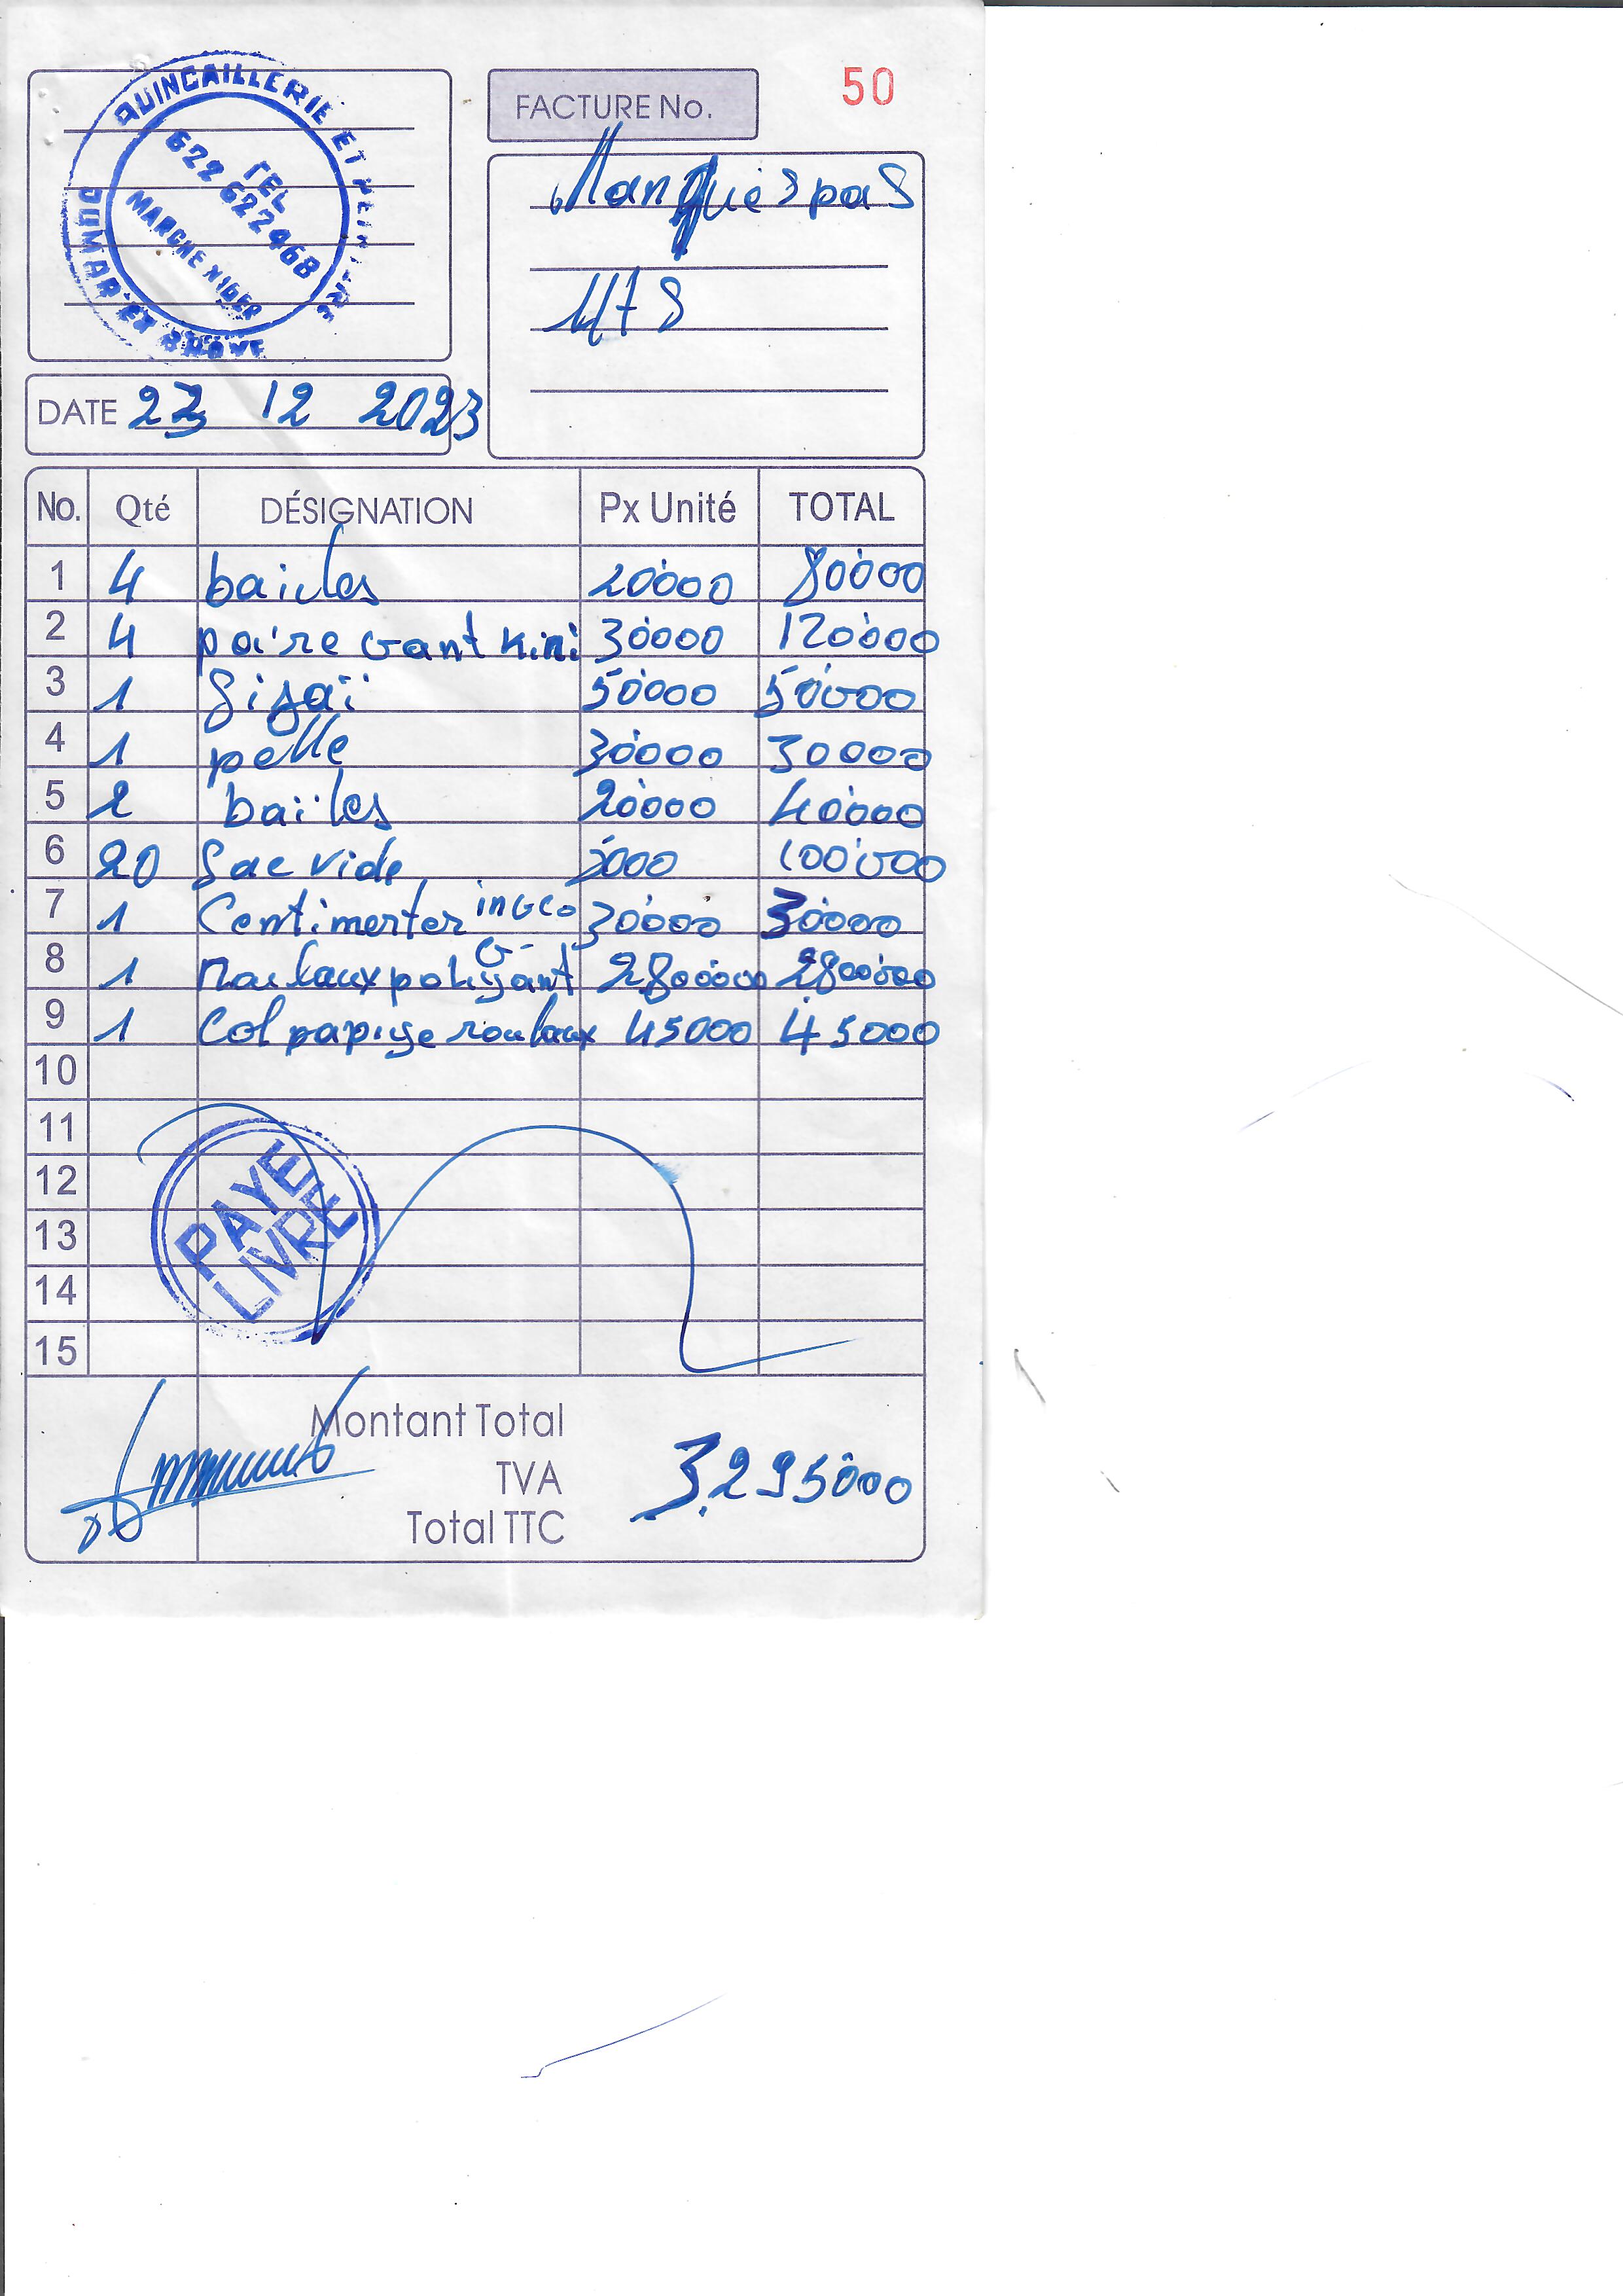 QUINCAILLERIE ET PEINTURE
OUMAR EX BROVE
TEL
622 622 468
MARCHE NIGER
FACTURE No.
50
Manquespas
DATE 23 12 2023
No. Qté DÉSIGNATION Px Unité TOTAL
1 4 bailes 20000 80000
2 4 paire Gant Kini 30000 120000
3 1 50000 50000
4 1 pelle 30000 30000
5 2 bailes 20000 40000
6 20 Sac vide 5000 100000
7 1 Centimerter inGco 30000 30000
8 1 Roulaux 2800000 2800000
9 1 Col papiye roulaux 45000 45000
10
11
12
13
14
15
PAYE
LIVRE
Montant Total
TVA
Total TTC
3.295000